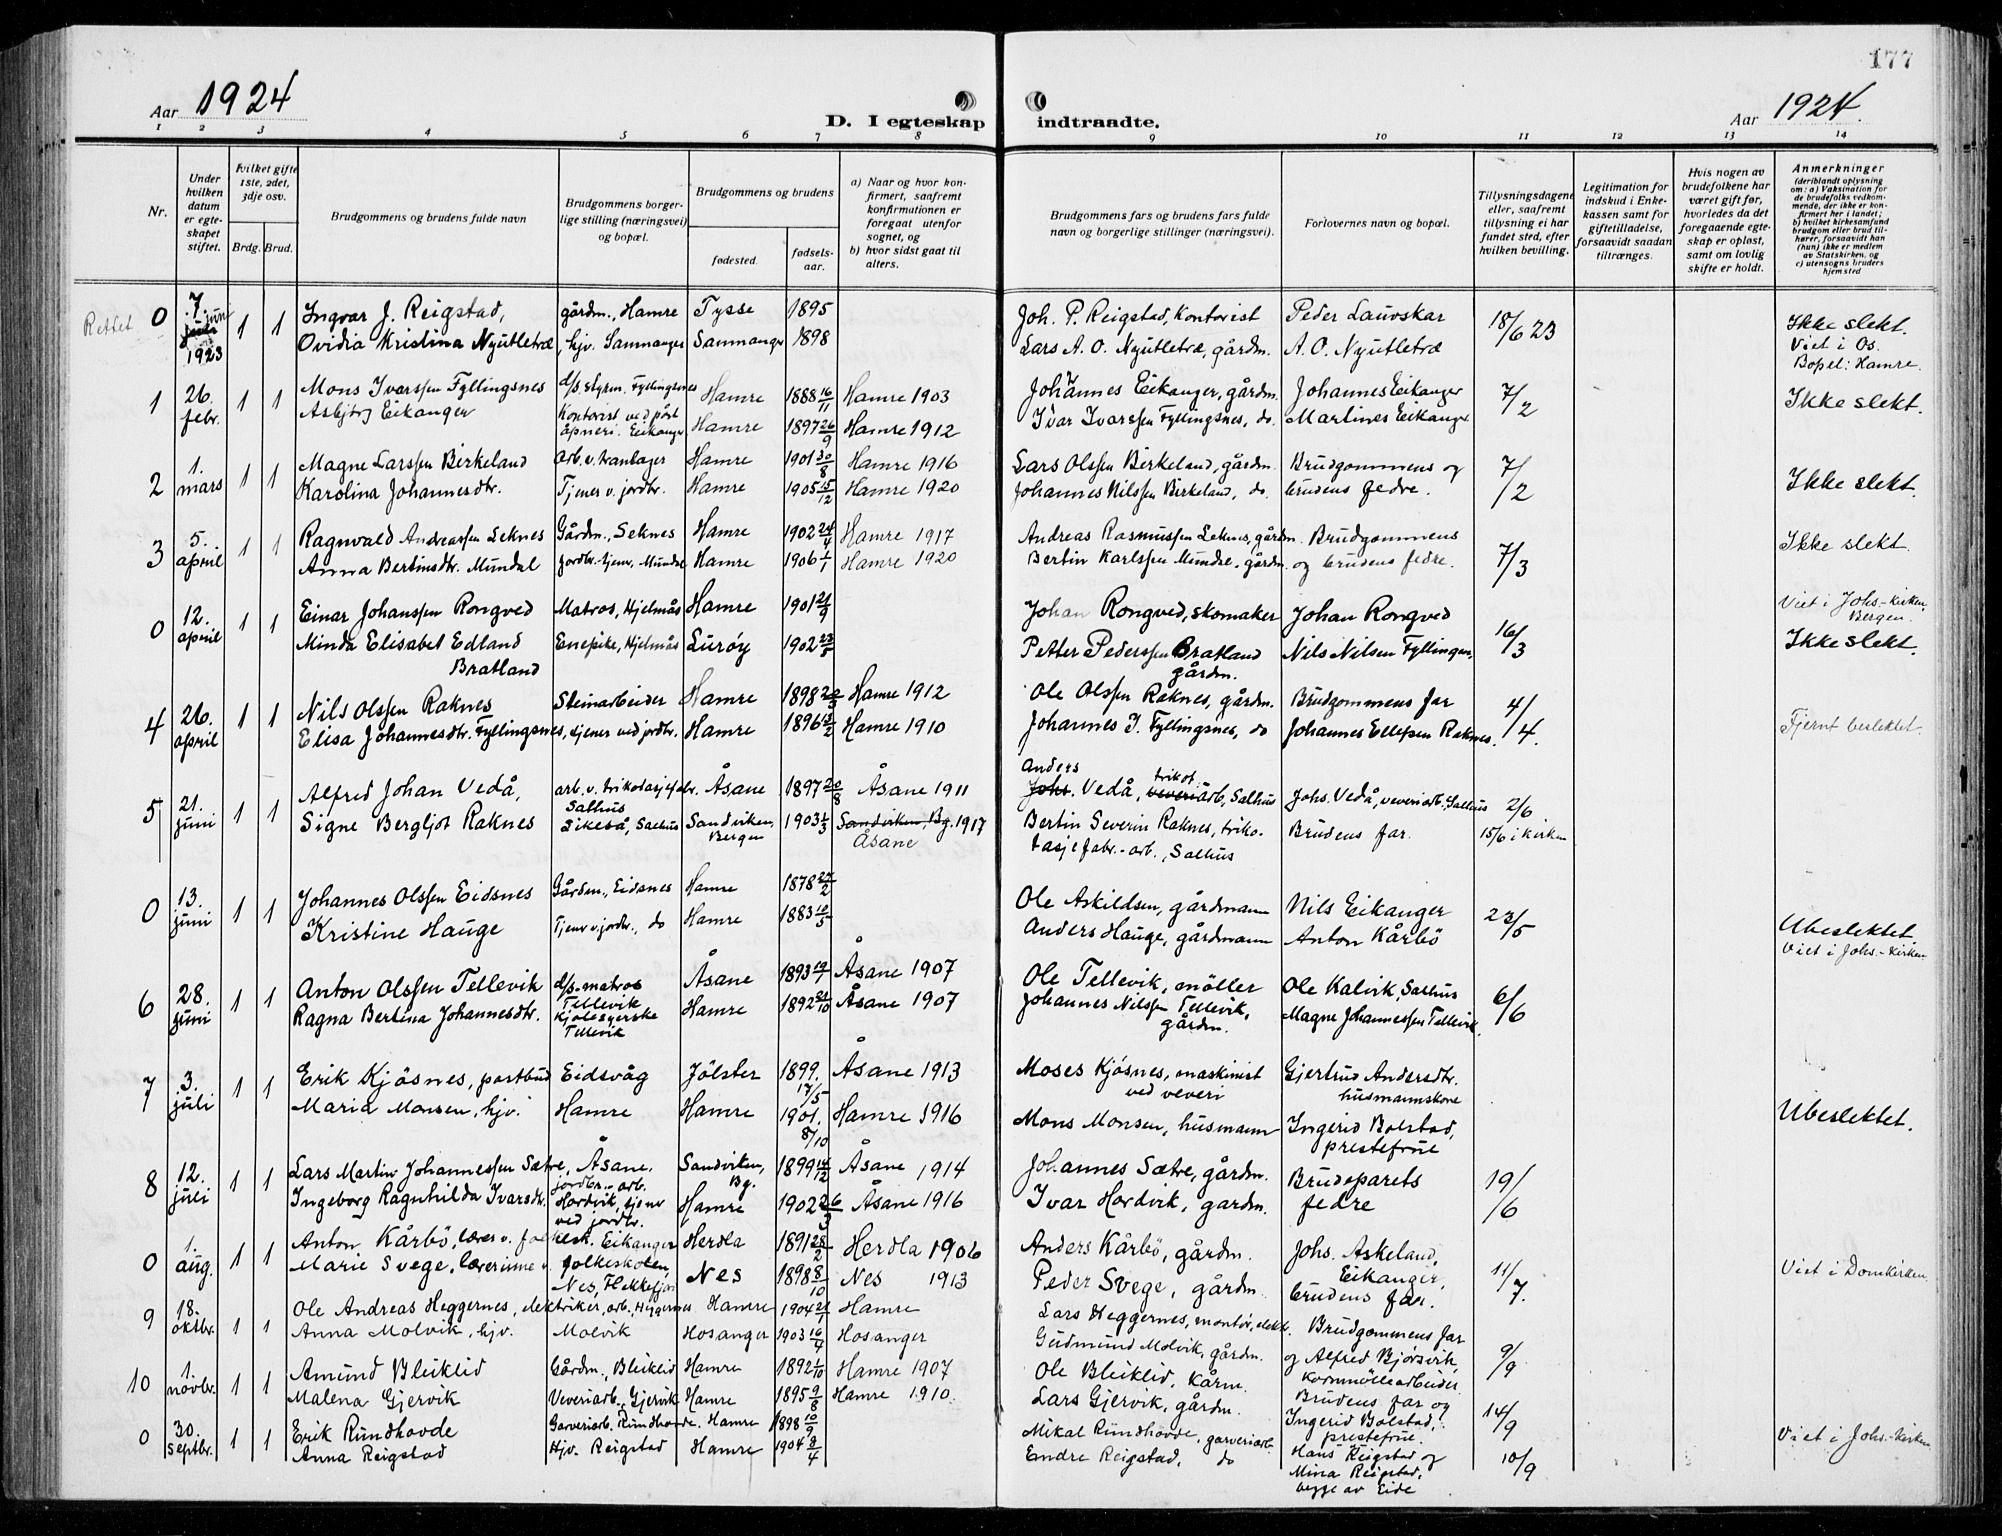 177
Aar 1924
D. I egteskap indtraadte.
Aar 1924.
1 2 3 4 5 6 7 8 9 10 11 12 13 14
Nr.
Under hvilken datum er egteskapet stiftet.
Hvilket gifte 1ste, 2det, 3dje osv.
Brdg. Brud.
Brudgommens og brudens fulde navn
Brudgommens borgerlige stilling (næringsvei) og bopæl.
Brudgommens og brudens
fødested.
fødselsaar.
a) Naar og hvor konfirmert, saafremt konfirmationen er foregaat utenfor sognet, og
b) hvor sidst gaat til alters.
Brudgommens fars og brudens fars fulde navn og borgerlige stillinger (næringsvei).
Forlovernes navn og bopæl.
Tillysningsdagene eller, saafremt tillysning ei har fundet sted, efter hvilken bevilling.
Legitimation for indskud i Enkekassen samt for giftetilladelse, forsaavidt saadan tiltrænges.
Hvis nogen av brudefolkene har været gift før, hvorledes da det foregaaende egteskap er opløst, samt om lovlig skifte er holdt.
Anmerkninger
(deriblandt oplysning om: a) Vaksination for de brudefolks vedkommende, der ikke er konfirmert her i landet; b) hvilket kirkesamfund brudgom eller brud tilhører, forsaavidt han (hun) ikke er medlem av Statskirken, og c) utensogns bruders hjemsted
Rettet 0 7. juni juli 1923 1 1 Ingvar J. Reigstad, gårdm., Hamre Tysse 1895 Joh. P. Reigstad, Kontorist Peder Lauvskar 18/6 23 Ikke slekt.
Ovidia Kristina Nyutletræ, hjv. Samnanger Samnanger 1898 Lars A. O. Nyutletræ, gårdm. A. O. Nyutletræ Viet i Os.
Bopel: Hamre.
1 26. febr. 1 1 Mons Ivarssen Fyllingsnes d/s styrm. Fyllingsnes Hamre 1888 16/11 Hamre 1903 Johannes Eikanger, gårdm. Johannes Eikanger 7/2 Ikke slekt.
Asbjørg Eikanger Kontorist ved post åpneri. Eikanger Hamre 1897 26/9 Hamre 1912 Ivar Ivarssen Fyllingsnes, do. Martines Eikanger
2 1. mars 1 1 Magne Larssen Birkeland Arb. v. tranlager Hamre 1901 30/8 Hamre 1916 Lars Olssen Birkeland, gårdm. Brudgommens og 7/2 Ikke slekt.
Karolina Johannesdtr. Tjener v. jordbr. Hamre 1905 15/12 Hamre 1920 Johannes Nilssen Birkeland, do. brudens fedre.
3 5. april 1 1 Ragnvald Andreassen Leknes Gårdm., Seknes Hamre 1902 24/4 Hamre 1917 Andreas Rasmussen Leknes, gårdm. Brudgommens 7/3 Ikke slekt.
Anna Bertinsdtr. Mundal jordbr. tjener, Mundal Hamre 1906 1/1 Hamre 1920 Bertin Karlssen Mundal, gårdm. og brudens fedre.
0 12. april 1 1 Einar Johanssen Rongved Matros, Hjelmås Hamre 1901 21/9 Johan Rongved, skomaker Johan Rongved 16/3 Viet i Johs-kirken, Bergen.
Minda Elisabet Edland Bratland Enepike, Hjelmås Lurøy 1902 Petter Pederssen Bratland gårdm. Nils Nilsen Fyllingen. Ikke slekt.
4 26. april 1 1 Nils Olssen Raknes Steinarbeider Hamre 1898 Hamre 1912 Ole Olssen Raknes, gårdm. Brudgommens far 4/4. Fjernt beslektet.
Elisa Johannesdtr. Fyllingsnes, tjener ved jordbr. Hamre 1896 13/2 Hamre 1910 Johannes I. Fyllingsnes, do Johannes Ellefsen Raknes.
5 21. juni 1 1 Alfred Johan Vedå, arb. v. trikotasjefabr. Salhus Åsane 1897 20/8 Åsane 1911 Anders Johs. Vedå, trikot. veveriarb, Salhus Johs. Vedå, veveriarb., Salhus 2/6
Signe Bergljot Raknes Likeså, Salhus Sandviken, Bergen 1903 1/3 Sandviken, Bg. 1917 Åsane Bertin Severin Raknes, trikotasjefabr.-arb., Salhus Brudens far. 15/6 i kirken
0 13. juni 1 1 Johannes Olssen Eidsnes Gårdm., Eidsnes Hamre 1878 Ole Askildsen, gårdmann Nils Eikanger 23/5 Ubeslektet
Kristine Hauge Tjener v. jordbr., do Hamre 1883 10/5 Anders Hauge, gårdmann Anton Kårbö Viet i Johs.-Kirken.
6 28. juni 1 1 Anton Olssen Tellevik d/s-matros Tellevik Åsane 1893 Åsane 1907 Ole Tellevik, möller Ole Kalvik, Salhus 6/6
Ragna Bertina Johannesdtr. Kjolesyerske Tellevik Hamre 1892 21/10 Åsane 1907 Johannes Nilssen Tellevik, gårdm. Magne Johannessen Tellevik.
7 3. juli 1 1 Erik Kjösnes, postbud Eidsvåg Jölster 1899. 17/5 Åsane 1913 Moses Kjösnes, maskinist ved veveri Gjertrud Andersdtr. husmannskone Ubeslektet.
Maria Monsen, hjv. Hamre Hamre 1901. 8/10 Hamre 1916 Mons Monsen, husmann Ingerid Bolstad, prestefrue
8 12. juli 1 1 Lars Martin Johannessen Sætre, Åsane. jordbr.-arb. Sandviken, Bg. 1899 14/12 Åsane 1914 Johannes Sætre, gårdm. Brudeparets 19/6
Ingeborg Ragnhilda Ivarsdtr. Hordvik, tjener ved jordbr. Hamre 1902 26/3 Åsane 1916 Ivar Hordvik, gardm. fedre
0 1. aug. 1 1 Anton Kårbö, lærer v. folkesk. Eikanger Herdla 1891 28/2 Herdla 1906 Anders Kårbö, gårdm. Johs. Askeland, Eikanger, 11/7. Viet i Domkirken.
Marie Svege, lærerinne v. folkeskolen, Nes, Flekkefjord Nes 1898 8/10 Nes 1913 Peder Svege, gårdm. brudens far.
9 18. oktbr. 1 1 Ole Andreas Heggernes, elektriker, arb. Heggernes Hamre 1904 Hamre Lars Heggernes, montör, elektr. Brudgommens far 9/9
Anna Molvik, hjv. Molvik Hosanger 1903 16/4 Hosanger Gudmund Molvik, gårdm. og Alfred Bjørsvik, Kornmöllearbeider.
10 1. novbr. 1 1 Amund Bleiklid Gårdm., Bleiklid Hamre 1892 1/10 Hamre 1907 Ole Bleiklid, kårm. Brudens far og 14/9
Malena Gjervik Veveriarb., Gjervik Hamre 1895 9/8 Hamre 1910. Lars Gjervik, gårdm. Ingerid Bolstad, prestefrue.
0 30. septbr. 1 1 Erik Rundhovde Garveriarb. Rundhovde. Hamre 1898 10/9 Mikal Rundhovde, garveriarb. Hans Reigstad og 10/9 Viet i Johs.-Kirken
Anna Reigstad Hjv. Reigstad Hamre 1904 Endre Reigstad, do Mina Reigstad, begge av Eide